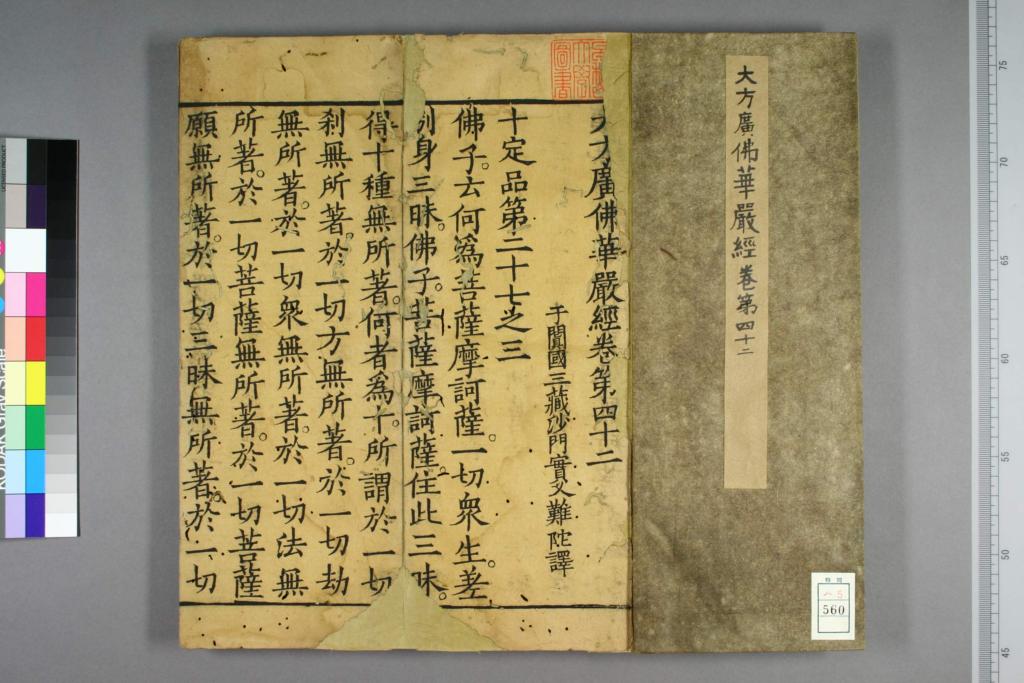 大方廣佛華嚴經卷第四十二
特別
ヘ 5
560
大方廣佛華嚴經卷第四十二
于闐國三藏沙門實叉難陀譯
十定品第二十七之三
佛子。云何為菩薩摩訶薩。一切衆生。差
別身三昧。佛子。菩薩摩訶薩。住此三昧。
得十種無所著。何者為十。所謂於一切
刹無所著。於一切方無所著。於一切劫
無所著。於一切衆無所著。於一切法無
所著。於一切菩薩無所著。於一切菩薩
願無所著。於一切三昧無所著。於一切
圖書
75
70
65
60
55
50
45